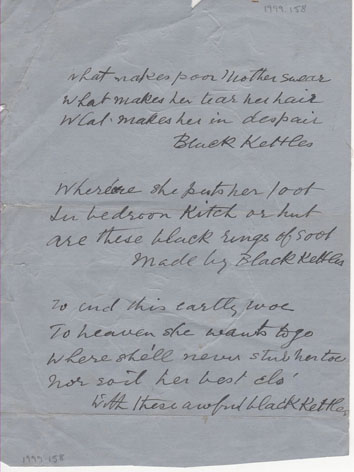 1999.158
What makes poor Mother swear
What makes her tear her hair
What makes her in despair
Black Kettles
Where'ere she puts her foot
In bedroom Kitch or hut
are these black rings of soot
Made by Black Kettles
To end this earthly woe
To heaven she wants to go
Where she'll never stub her toe
Nor soil her best clo'
With these awful black Kettles
1999.158